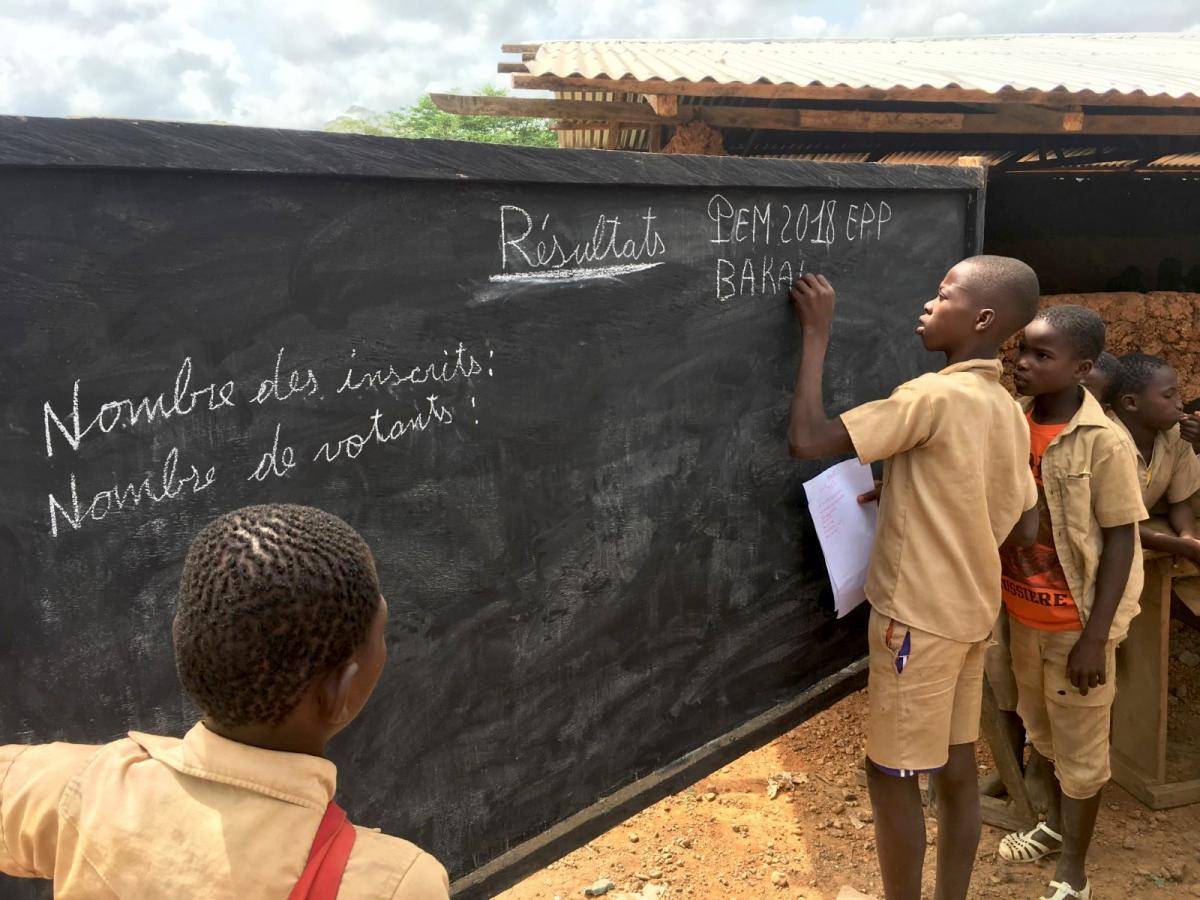 Résultats PEM 2018 EPP
BAKA
Nombre des inscrits:
Nombre de votants: